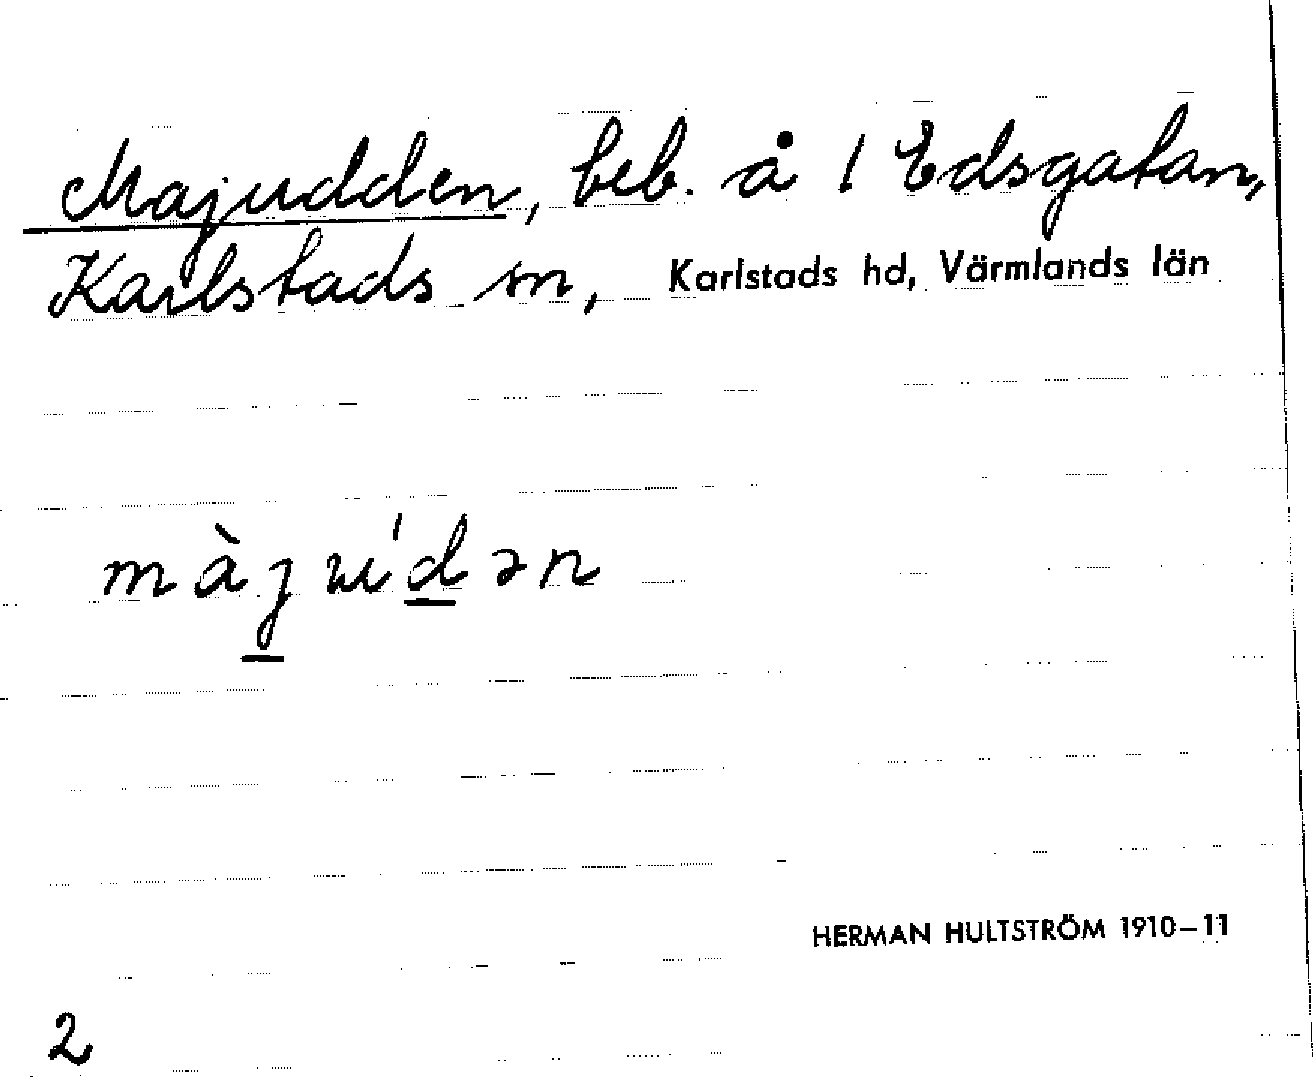 Majudden, beb. å 1 Edsgatan,
Karlstads sn, Karlstads hd, Värmlands län
màjud́ən
HERMAN HULTSTRÖM 1910–11
2